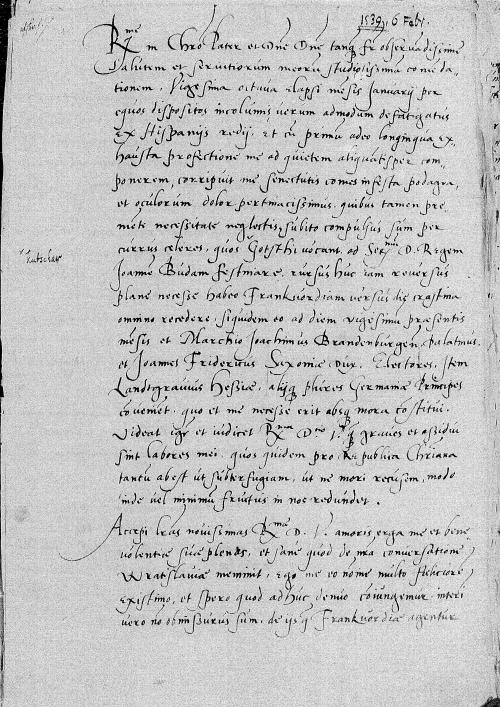 1539, 6 Febr.
R^me in Chro Pater et Dne Dne tanq fr observadissime
Salutem et servitiorum meoru studiosissima comeda-
tionem. Vigesima octava elapsi mesis Januarij per
equos dispositos incolumis verum admodum defatigatus
ex Hispanijs redij. Et cu primu adeo longinqua ex-
hausta profectione me ad quietem aliquatisper com-
ponerem, corripuit me senectutis comes infesta podagra,
et oculorum dolor pertinacissimus, quibus tamen pre-
mete necessitate neglectis, subito compulsus sum per
currus celeres, quos Gotsthi vocant, ad Ser^mu D. Regem
Kutschae
Joanne Budam festinare, rursus huc iam reversus
plane necesse habeo Frankuordiam versus die crastina
omnino recedere, siquidem eo ad diem vigesimu presentis
mesis et Marchio Joachimus Brandenburgen, Palatinus,
et Joannes Fridericus Saxonie Dux, Electores, Item
Landtgravius Hessie, alijq plures Germanie Principes
coveniet, quo et me necesse erit absq mora costitui.
Videat igr et iudicet R^ma D^tio V^ra q graves et assidui
sint labores mei, quos quidem pro Republica Chriana
tantu abest ut subterfugiam, ut ne mori recusem, modo
inde vel minimu fructus in nos redundet.
Accepi lras novissimas R^me D. V. amoris erga me et bene
volentie sue plenas, et sane quod de mea conversatione
Wratslavie meminit, Ego me eo nomine multo feliciore
existimo, et spero quod adhuc denuo coiungemur, interi
vero no omissurus sum, de ijs q Frankuordie agentur